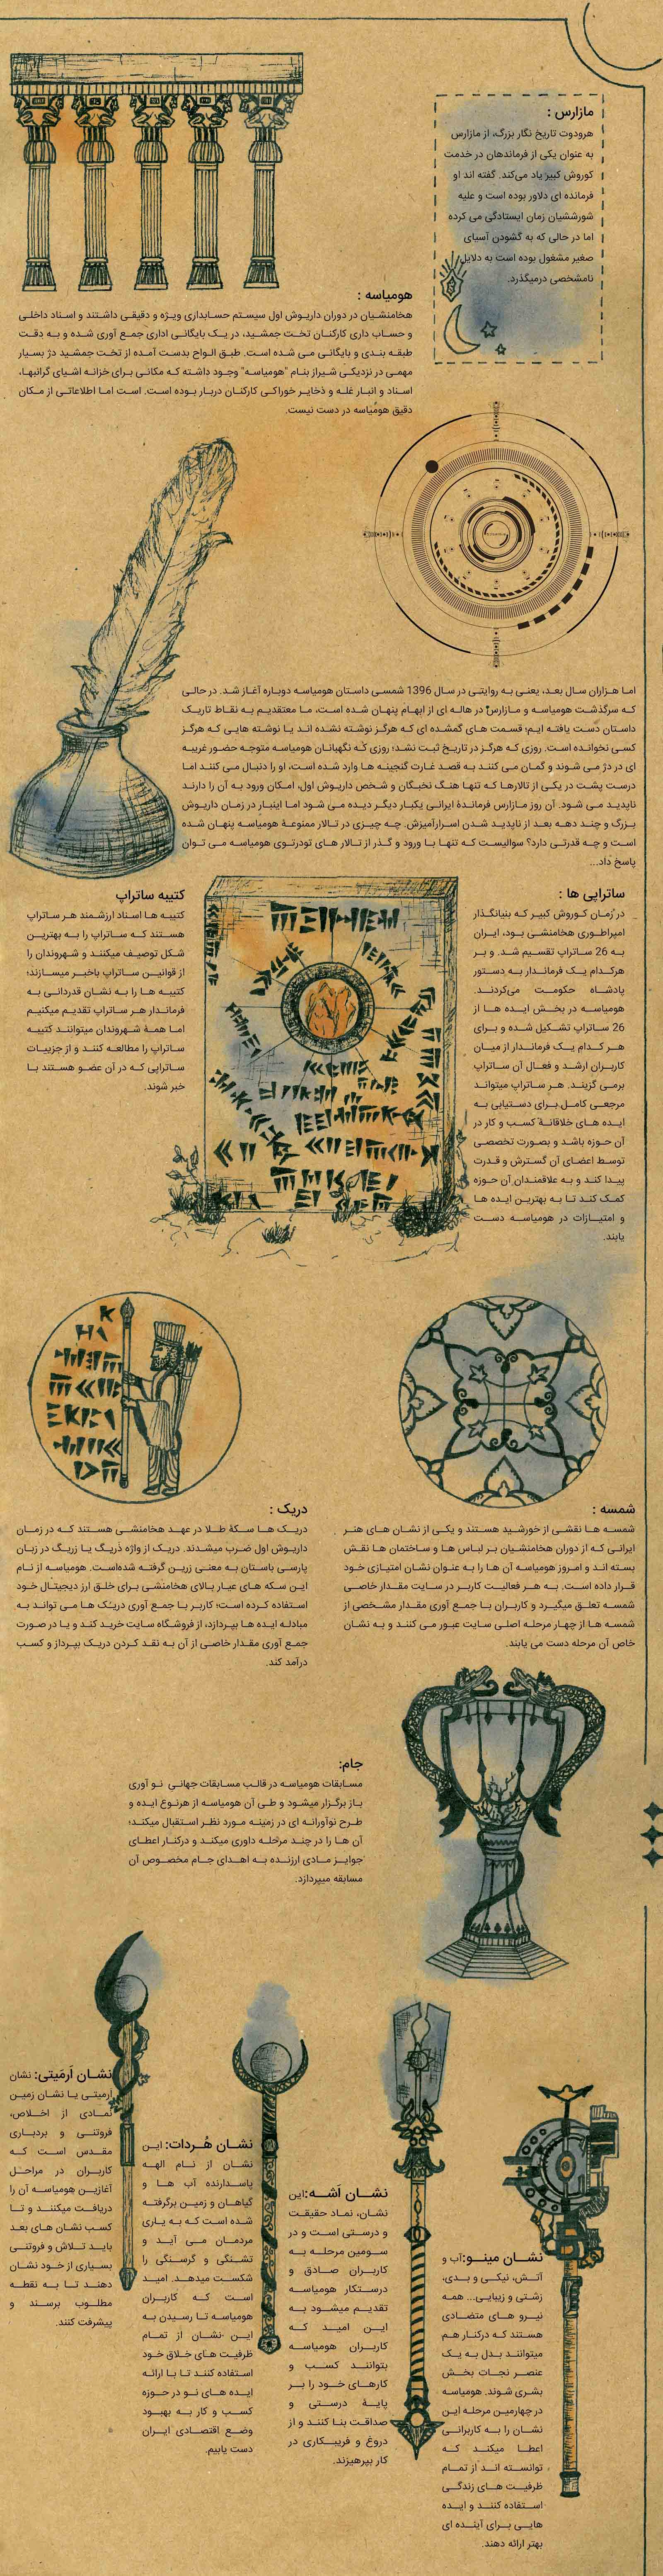 مازارس :
هرودوت تاریخ نگار بزرگ، از مازارس
به عنوان یکی از فرماندهان در خدمت
کوروش کبیر یاد می‌کند. گفته اند او
فرمانده ای دلاور بوده است و علیه
شورشیان زمان ایستادگی می کرده
اما در حالی که به گشودن آسیای
صغیر مشغول بوده است به دلایل
نامشخصی درمیگذرد.
هومیاسه :
هخامنشیان در دوران داریوش اول سیستم حسابداری ویژه و دقیقی داشتند و اسناد داخلی
و حساب داری کارکنان تخت جمشید، در یک بایگانی اداری جمع آوری شده و به دقت
طبقه بندی و بایگانی می شده است. طبق الواح بدست آمده از تخت جمشید دژ بسیار
مهمی در نزدیکی شیراز بنام "هومیاسه" وجود داشته که مکانی برای خزانه اشیای گرانبها،
اسناد و انبار غله و ذخایر خوراکی کارکنان دربار بوده است. است اما اطلاعاتی از مکان
دقیق هومیاسه در دست نیست.
اما هزاران سال بعد، یعنی به روایتی در سال 1396 شمسی داستان هومیاسه دوباره آغاز شد. در حالی
که سرگذشت هومیاسه و مازارس در هاله ای از ابهام پنهان شده است، ما معتقدیم به نقاط تاریک
داستان دست یافته ایم؛ قسمت های گمشده ای که هرگز نوشته نشده اند یا نوشته هایی که هرگز
کسی نخوانده است. روزی که هرگز در تاریخ ثبت نشد؛ روزی که نگهبانان هومیاسه متوجه حضور غریبه
ای در دژ می شوند و گمان می کنند به قصد غارت گنجینه ها وارد شده است، او را دنبال می کنند اما
درست پشت در یکی از تالارها که تنها هنگ نخبگان و شخص داریوش اول، امکان ورود به آن را دارند
ناپدید می شود. آن روز مازارس فرماندهٔ ایرانی یکبار دیگر دیده می شود اما اینبار در زمان داریوش
بزرگ و چند دهه بعد از ناپدید شدن اسرارآمیزش. چه چیزی در تالار ممنوعهٔ هومیاسه پنهان شده
است و چه قدرتی دارد؟ سوالیست که تنها با ورود و گذر از تالار های تودرتوی هومیاسه می توان
پاسخ داد...
ساتراپی ها :
در زمان کوروش کبیر که بنیانگذار
امپراطوری هخامنشی بود، ایران
به 26 ساتراپ تقسیم شد. و بر
هرکدام یک فرماندار به دستور
پادشاه حکومت می‌کردند.
هومیاسه در بخش ایده ها از
26 ساتراپ تشکیل شده و برای
هر کدام یک فرماندار از میان
کاربران ارشد و فعال آن ساتراپ
برمی گزیند. هر ساتراپ میتواند
مرجعی کامل برای دستیابی به
ایده های خلاقانهٔ کسب و کار در
آن حوزه باشد و بصورت تخصصی
توسط اعضای آن گسترش و قدرت
پیدا کند و به علاقمندان آن حوزه
کمک کند تا به بهترین ایده ها
و امتیازات در هومیاسه دست
یابند.
کتیبه ساتراپ
کتیبه ها اسناد ارزشمند هر ساتراپ
هستند که ساتراپ را به بهترین
شکل توصیف میکنند و شهروندان را
از قوانین ساتراپ باخبر میسازند؛
کتیبه ها را به نشان قدردانی به
فرماندار هر ساتراپ تقدیم میکنیم
اما همهٔ شهروندان میتوانند کتیبه
ساتراپ را مطالعه کنند و از جزییات
ساتراپی که در آن عضو هستند با
خبر شوند.
شمسه :
شمسه ها نقشی از خورشید هستند و یکی از نشان های هنر
ایرانی که از دوران هخامنشیان بر لباس ها و ساختمان ها نقش
بسته اند و امروز هومیاسه آن ها را به عنوان نشان امتیازی خود
قرار داده است. به هر فعالیت کاربر در سایت مقدار خاصی
شمسه تعلق میگیرد و کاربران با جمع آوری مقدار مشخصی از
شمسه ها از چهار مرحله اصلی سایت عبور می کنند و به نشان
خاص آن مرحله دست می یابند.
دریک :
دریک ها سکهٔ طلا در عهد هخامنشی هستند که در زمان
داریوش اول ضرب میشدند. دریک از واژه ذریگ یا زریگ در زبان
پارسی باستان به معنی زرین گرفته شده‌است. هومیاسه از نام
این سکه های عیار بالای هخامنشی برای خلق ارز دیجیتال خود
استفاده کرده است؛ کاربر با جمع آوری دریک ها می تواند به
مبادله ایده ها بپردازد، از فروشگاه سایت خرید کند و یا در صورت
جمع آوری مقدار خاصی از آن به نقد کردن دریک بپرداز و کسب
درآمد کند.
جام:
مسابقات هومیاسه در قالب مسابقات جهانی نو آوری
باز برگزار میشود و طی آن هومیاسه از هرنوع ایده و
طرح نوآورانه ای در زمینه مورد نظر استقبال میکند؛
آن ها را در چند مرحله داوری میکند و درکنار اعطای
جوایز مادی ارزنده به اهدای جام مخصوص آن
مسابقه میپردازد.
نشان آرمَیتی: نشان
آرمیتی یا نشان زمین
نمادی از اخلاص،
فروتنی و بردباری
مقدس است که
کاربران در مراحل
آغازین هومیاسه آن را
دریافت میکنند و تا
کسب نشان های بعد
باید تلاش و فروتنی
بسیاری از خود نشان
دهند تا به نقطه
مطلوب برسند و
پیشرفت کنند.
نشان هُردات: این
نشان از نام الهه
پاسدارنده آب ها و
گیاهان و زمین برگرفته
شده است که به یاری
مردمان می آید و
تشنگی و گرسنگی را
شکست میدهد. امید
است که کاربران
هومیاسه تا رسیدن به
این نشان از تمام
ظرفیت های خلاق خود
استفاده کنند تا با ارائه
ایده های نو در حوزه
کسب و کار به بهبود
وضع اقتصادی ایران
دست یابیم.
نشان اَشه:این
نشان، نماد حقیقت
و درستی است و در
سومین مرحله به
کاربران صادق و
درستکار هومیاسه
تقدیم میشود به
این امید که
کاربران هومیاسه
بتوانند کسب و
کارهای خود را بر
پایهٔ درستی و
صداقت بنا کنند و از
دروغ و فریبکاری در
کار بپرهیزند.
نشان مینو:آب و
آتش، نیکی و بدی،
زشتی و زیبایی... همه
نیرو های متضادی
هستند که درکنار هم
میتوانند بدل به یک
عنصر نجات بخش
بشری شوند. هومیاسه
در چهارمین مرحله این
نشان را به کاربرانی
اعطا میکند که
توانسته اند از تمام
ظرفیت های زندگی
استفاده کنند و ایده
هایی برای آینده ای
بهتر ارائه دهند.